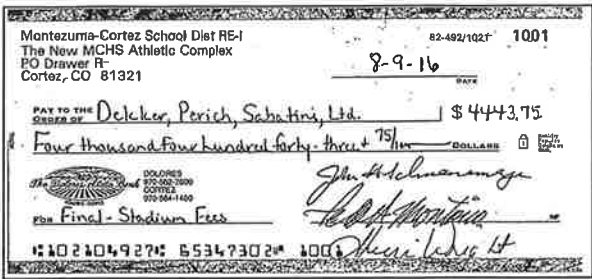 Montezuma-Cortez School Dist RE-1
The New MCHS Athletic Complex
PO Drawer R
Cortez, CO 81321
82-492/1021 1001
8-9-16
DATE
PAY TO THE
ORDER OF Delcker, Perich, Sabatini, Ltd. $ 4443.75
Four thousand four hundred forty-three + 75/100 DOLLARS
The Dolores State Bank
DOLORES
970-882-7600
CORTEZ
FOR Final - Stadium Fees
⑆102104927⑆ 65347302⑈ 1001